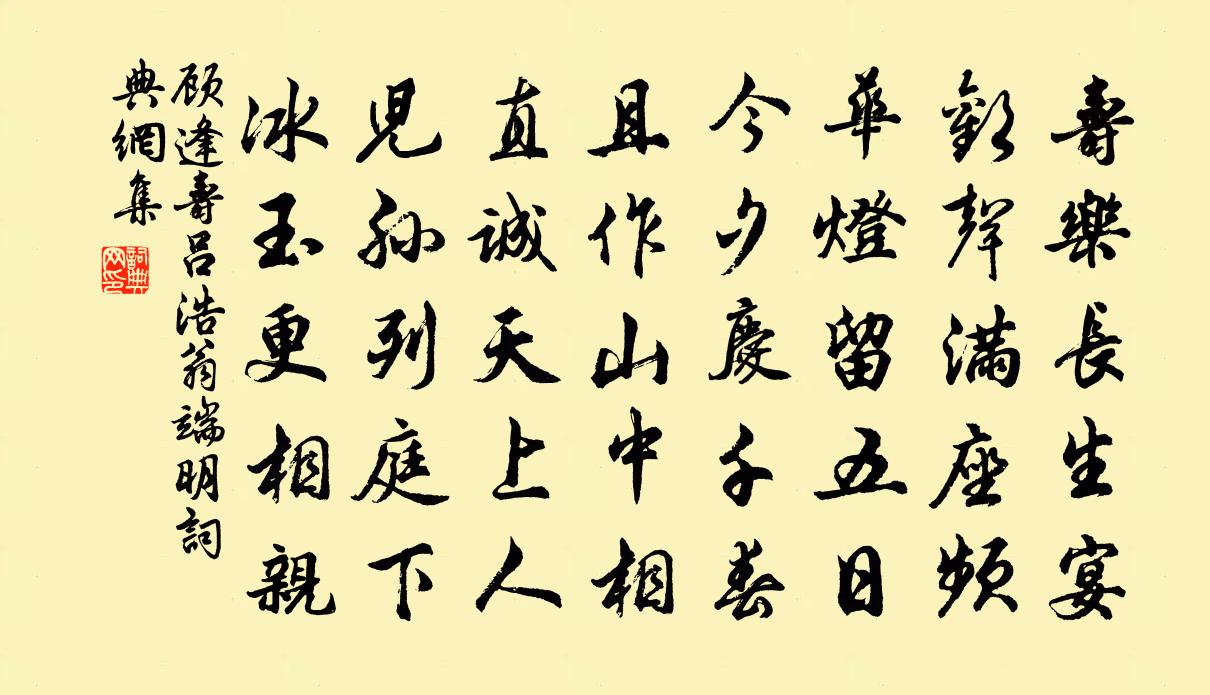 壽樂長生宴
歡聲滿座頻
華燈留五日
今夕慶千春
且作山中相
真誠天上人
兒孫列庭下
冰玉更相親
顾逢壽呂浩翁端明詞
典網集
詞典
网印